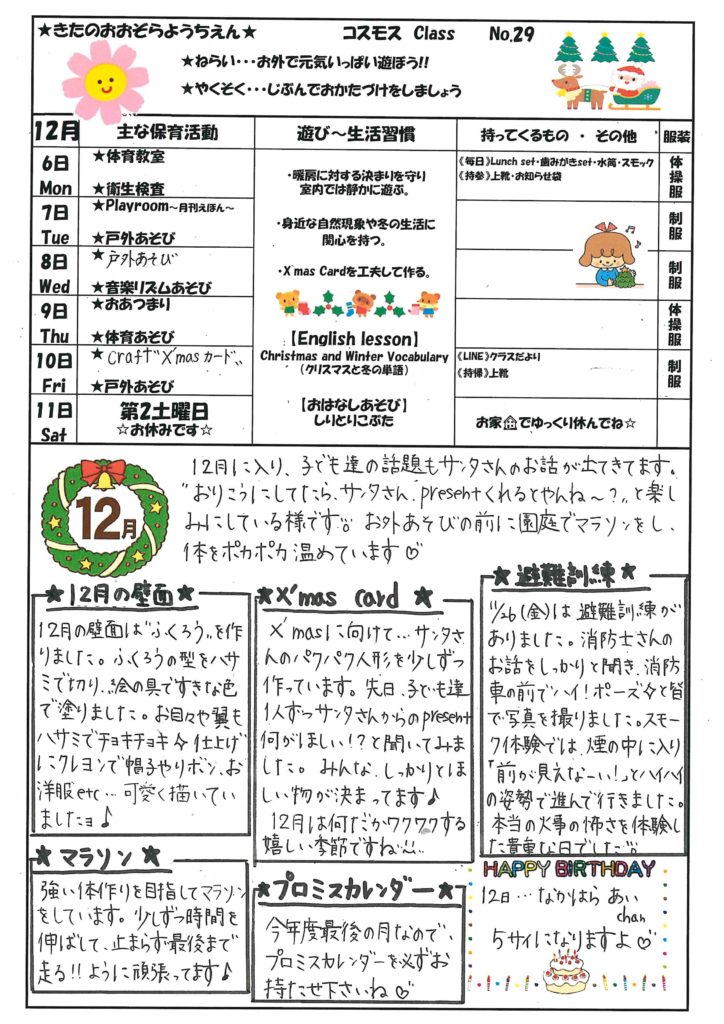 ★きたのおおぞらようちえん★ コスモス Class No.29
★ねらい・・・お外で元気いっぱい遊ぼう!!
★やくそく・・・じぶんでおかたづけをしましょう
12月 主な保育活動 遊び～生活習慣 持ってくるもの ・ その他 服装
6日 Mon
★体育教室
★衛生検査
7日 Tue
★Playroom～月刊えほん～
★戸外あそび
8日 Wed
★戸外あそび
★音楽リズムあそび
9日 Thu
★おあつまり
★体育あそび
10日 Fri
★craft“X'masカード”
★戸外あそび
11日 Sat
第2土曜日
☆お休みです☆
・暖房に対する決まりを守り
室内では静かに遊ぶ。
・身近な自然現象や冬の生活に
関心を持つ。
・X'mas Cardを工夫して作る。
【English lesson】
Christmas and Winter Vocabulary
（クリスマスと冬の単語）
【おはなしあそび】
しりとりこぶた
《毎日》Lunch set・歯みがきset・水筒・スモック
《持参》上靴・お知らせ袋
《LINE》クラスだより
《持帰》上靴
お家でゆっくり休んでね☆
体操服
制服
制服
体操服
制服
12月
12月に入り、子ども達の話題もサンタさんのお話が出てきてます。
“おりこうにしてたら、サンタさん、presentくれるとやんね～?”と楽し
みにしている様です。お外あそびの前に園庭でマラソンをし、
体をポカポカ温めています♡
★12月の壁面★
12月の壁面は“ふくろう”を作
りました。ふくろうの型をハサ
ミで切り、絵の具ですきな色
で塗りました。お目々や翼も
ハサミでチョキチョキ✧仕上げ
にクレヨンで帽子やリボン、お
洋服etc…可愛く描いてい
ましたョ♪
★X'mas card★
X'masに向けて…サンタさ
んのパクパク人形を少しずつ
作っています。先日、子ども達
1人ずつサンタさんからのpresent
何がほしい!?と聞いてみま
した。みんな、しっかりとほし
い物が決まってます♪
12月は何だかワクワクする
嬉しい季節ですね
★避難訓練★
11/26(金)は避難訓練が
ありました。消防士さんの
お話をしっかりと聞き、消防
車の前でハイ!ポーズ✧と皆
で写真を撮りました。スモー
ク体験では、煙の中に入り
「前が見えなーい!」とハイハイ
の姿勢で進んで行きました。
本当の火事の怖さを体験し
た貴重な日でした
★マラソン★
強い体作りを目指してマラソン
をしています。少しずつ時間を
伸ばして、止まらず最後まで
走る!!ように頑張ってます♪
★プロミスカレンダー★
今年度最後の月なので、
プロミスカレンダーを必ずお
持たせ下さいね♡
HAPPY BIRTHDAY
12日…なかはら あい
chan
5サイになりますよ♡